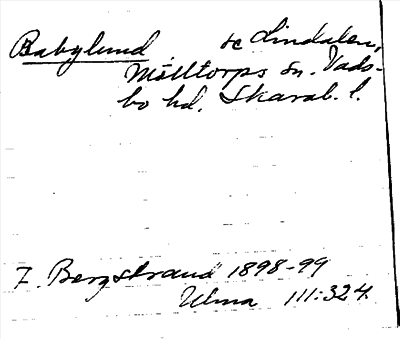 Babylund. se Lindalen,
Mölltorps sn. Vads-
bo hd. Skarab. l.
F. Bergstrand 1898-99
Ulma 111:324